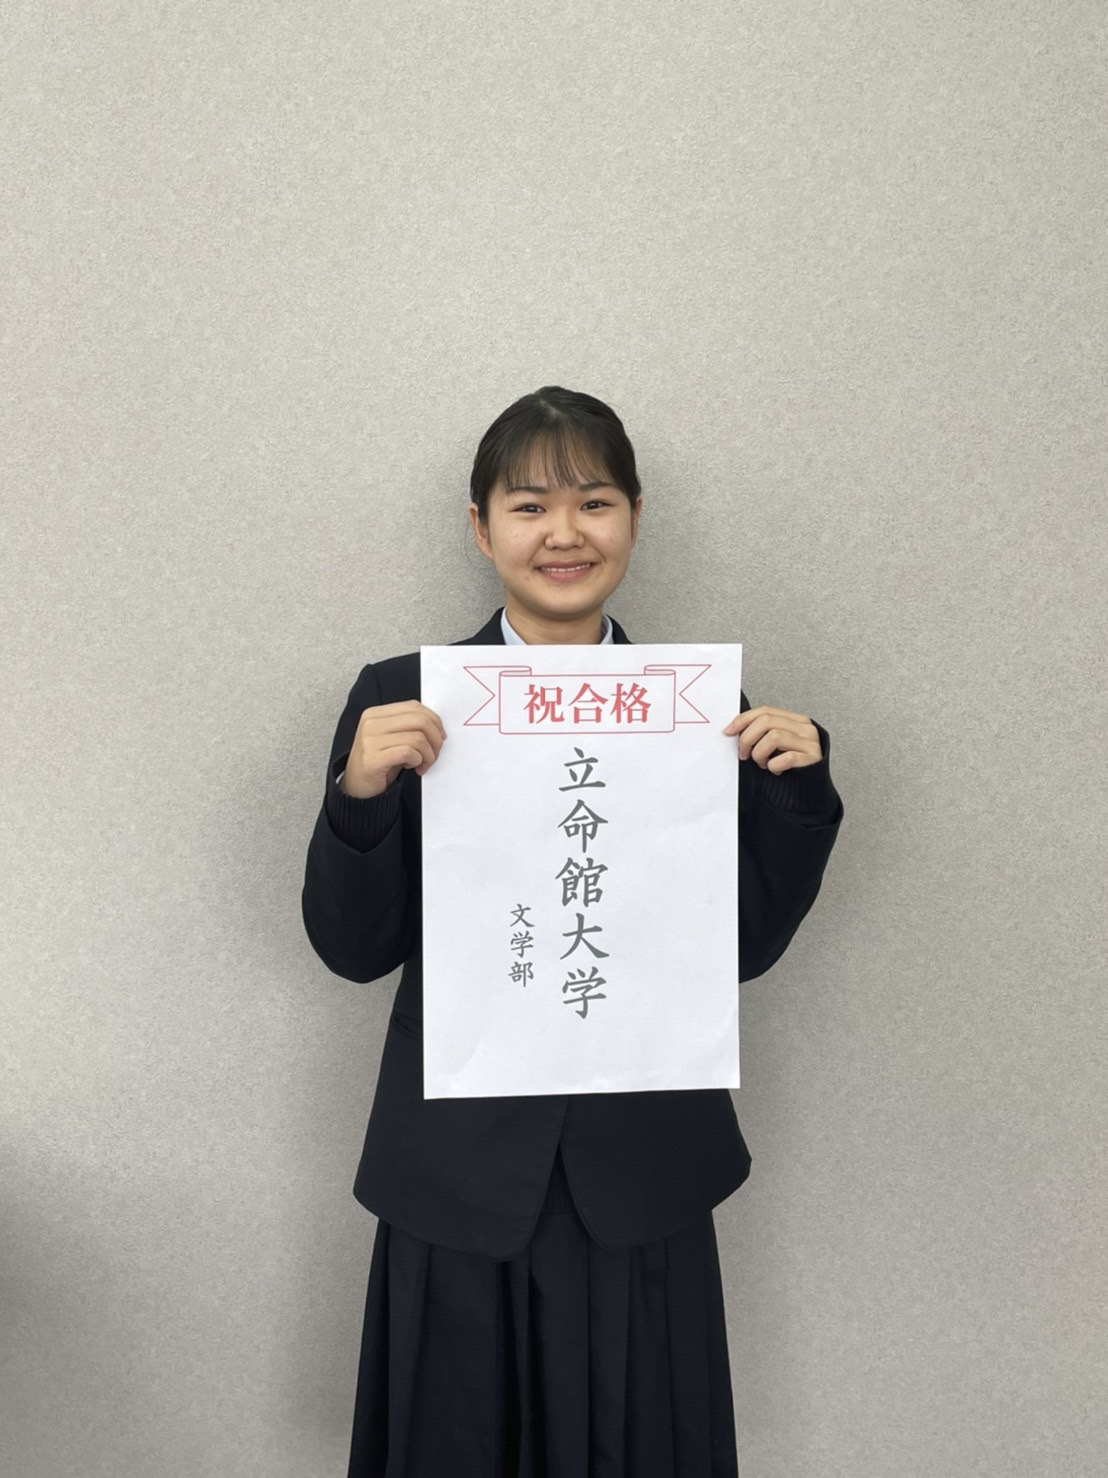 祝合格
立命館大学
文学部